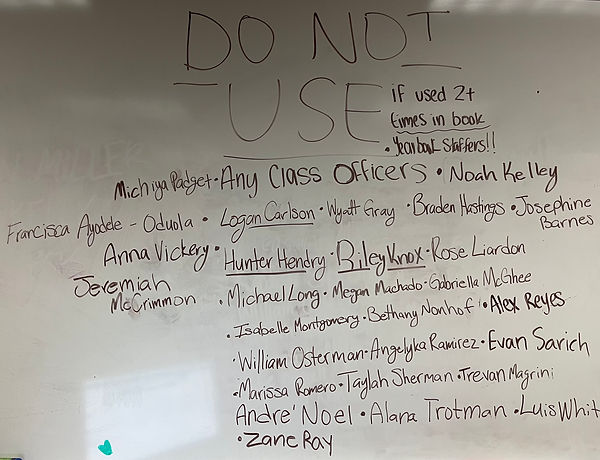 DO NOT
USE
if used 2+
times in book
• Yearbook Staffers!!
Michiya Padget • Any Class Officers • Noah Kelley
Francisca Ayodele - Oduola • Logan Carlson • Wyatt Gray • Braden Hastings • Josephine Barnes
Anna Vickery • Hunter Hendry • Riley Knox • Rose Liardon
Jeremiah McCrimmon
• Michael Long • Megan Machado • Gabriella McGhee
• Isabelle Montgomery • Bethany Nonhof • Alex Reyes
• William Osterman • Angelyka Ramirez • Evan Sarich
• Marissa Romero • Taylah Sherman • Trevan Magrini
Andre' Noel • Alana Trotman • Luis Whit
• Zane Ray